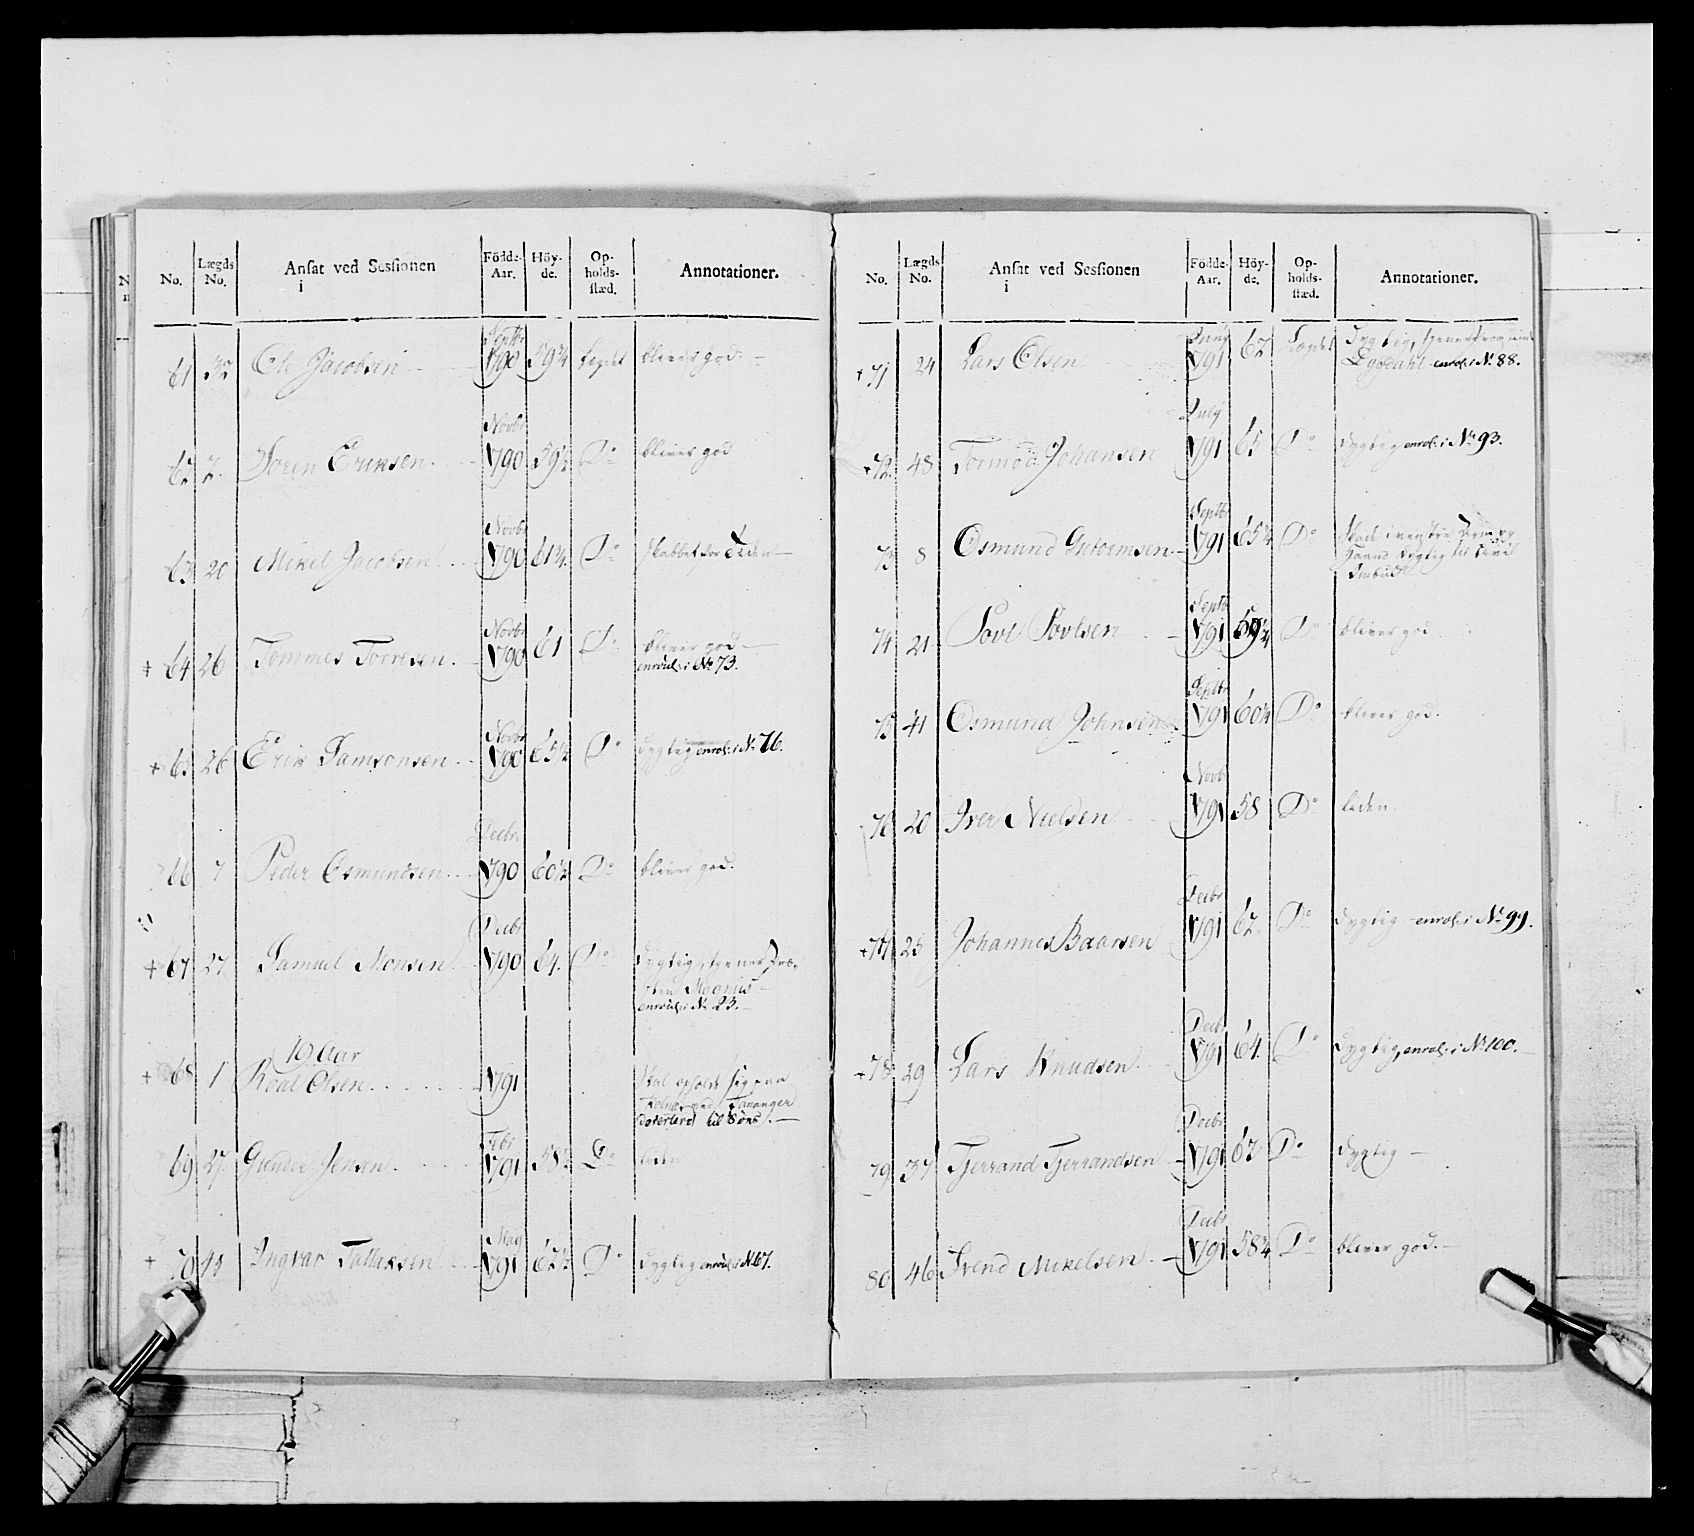 No. Lægds No. Ansat ved Sessionen i Födde-Aar. Höy-de. Op-holds-stæd. Annotationer.
61 32 Ole Jacobsen Septbr 1790 59 3/4 Lægdet bliver god.
62 7. Soren Eriksen. Novbr 1790 59 1/2 Do bliver god
63 20 Mikel Jacobsen Novbr 1790 61 3/4. Do skabbet for Tiden
+ 64 26 Tommes Torresen. Novbr 1790 61 Do bliver god
enroul. i No 73.
+ 65 26 Erik Samsonsen Novbr 1790 65 1/2 Do dygtig enrol. i No 76.
66 7 Peder Osmundsen Decbr. 1790 60 1/2 Do bliver god.
+ 67 27 Samuel Monsen Decbr 1790 64. Do dygtig, tjener
enroul. i No 23.
19 Aar
+ 68 1 Roal Olsen 1791 skal opholde sig paa
ved Tananger
til Söns.
69 27. Gunder Jensen Febr 1791 58 1/2 Do liden
+ 70 44 Ingvar Tallaksen May 1791 62 1/2 Do dygtig enroul. i No 67.
No. Lægds No. Ansat ved Sessionen i Födde-Aar. Höy-de. Op-holds-stæd. Annotationer.
+ 71 24 Lars Olsen Juny 1791 62 Lægdet Dygtig, tjener
enrol. i No 88.
+ 72. 48 Tormod Johansen July 1791 65 Do dygtig enrol. i No 93.
73 8 Osmund Guttormsen Septbr 1791 65 1/4 Do Skade i venstre Arm og
Haand dygtig til Civil
Embud
74 21 Povl Povlsen Septbr 1791 59 1/4 Do bliver god
75 41 Osmund Johnsen Septbr 1791 60 1/4 Do bliver god.
76 20 Iver Nielsen Novbr 1791 58 Do liden
+ 77 25 Johannes Baarsen Decbr 1791 62. Do dygtig enrol. i No 99.
+ 78 29 Lars Knudsen Decbr 1791 64. Do dygtig, enrol. i No 100.
79 37 Tjerrand Tjerrandsen Decbr 1791 62 Do dygtig
80 46 Svend Mikelsen Decbr 1791 58 1/4 Do bliver god.